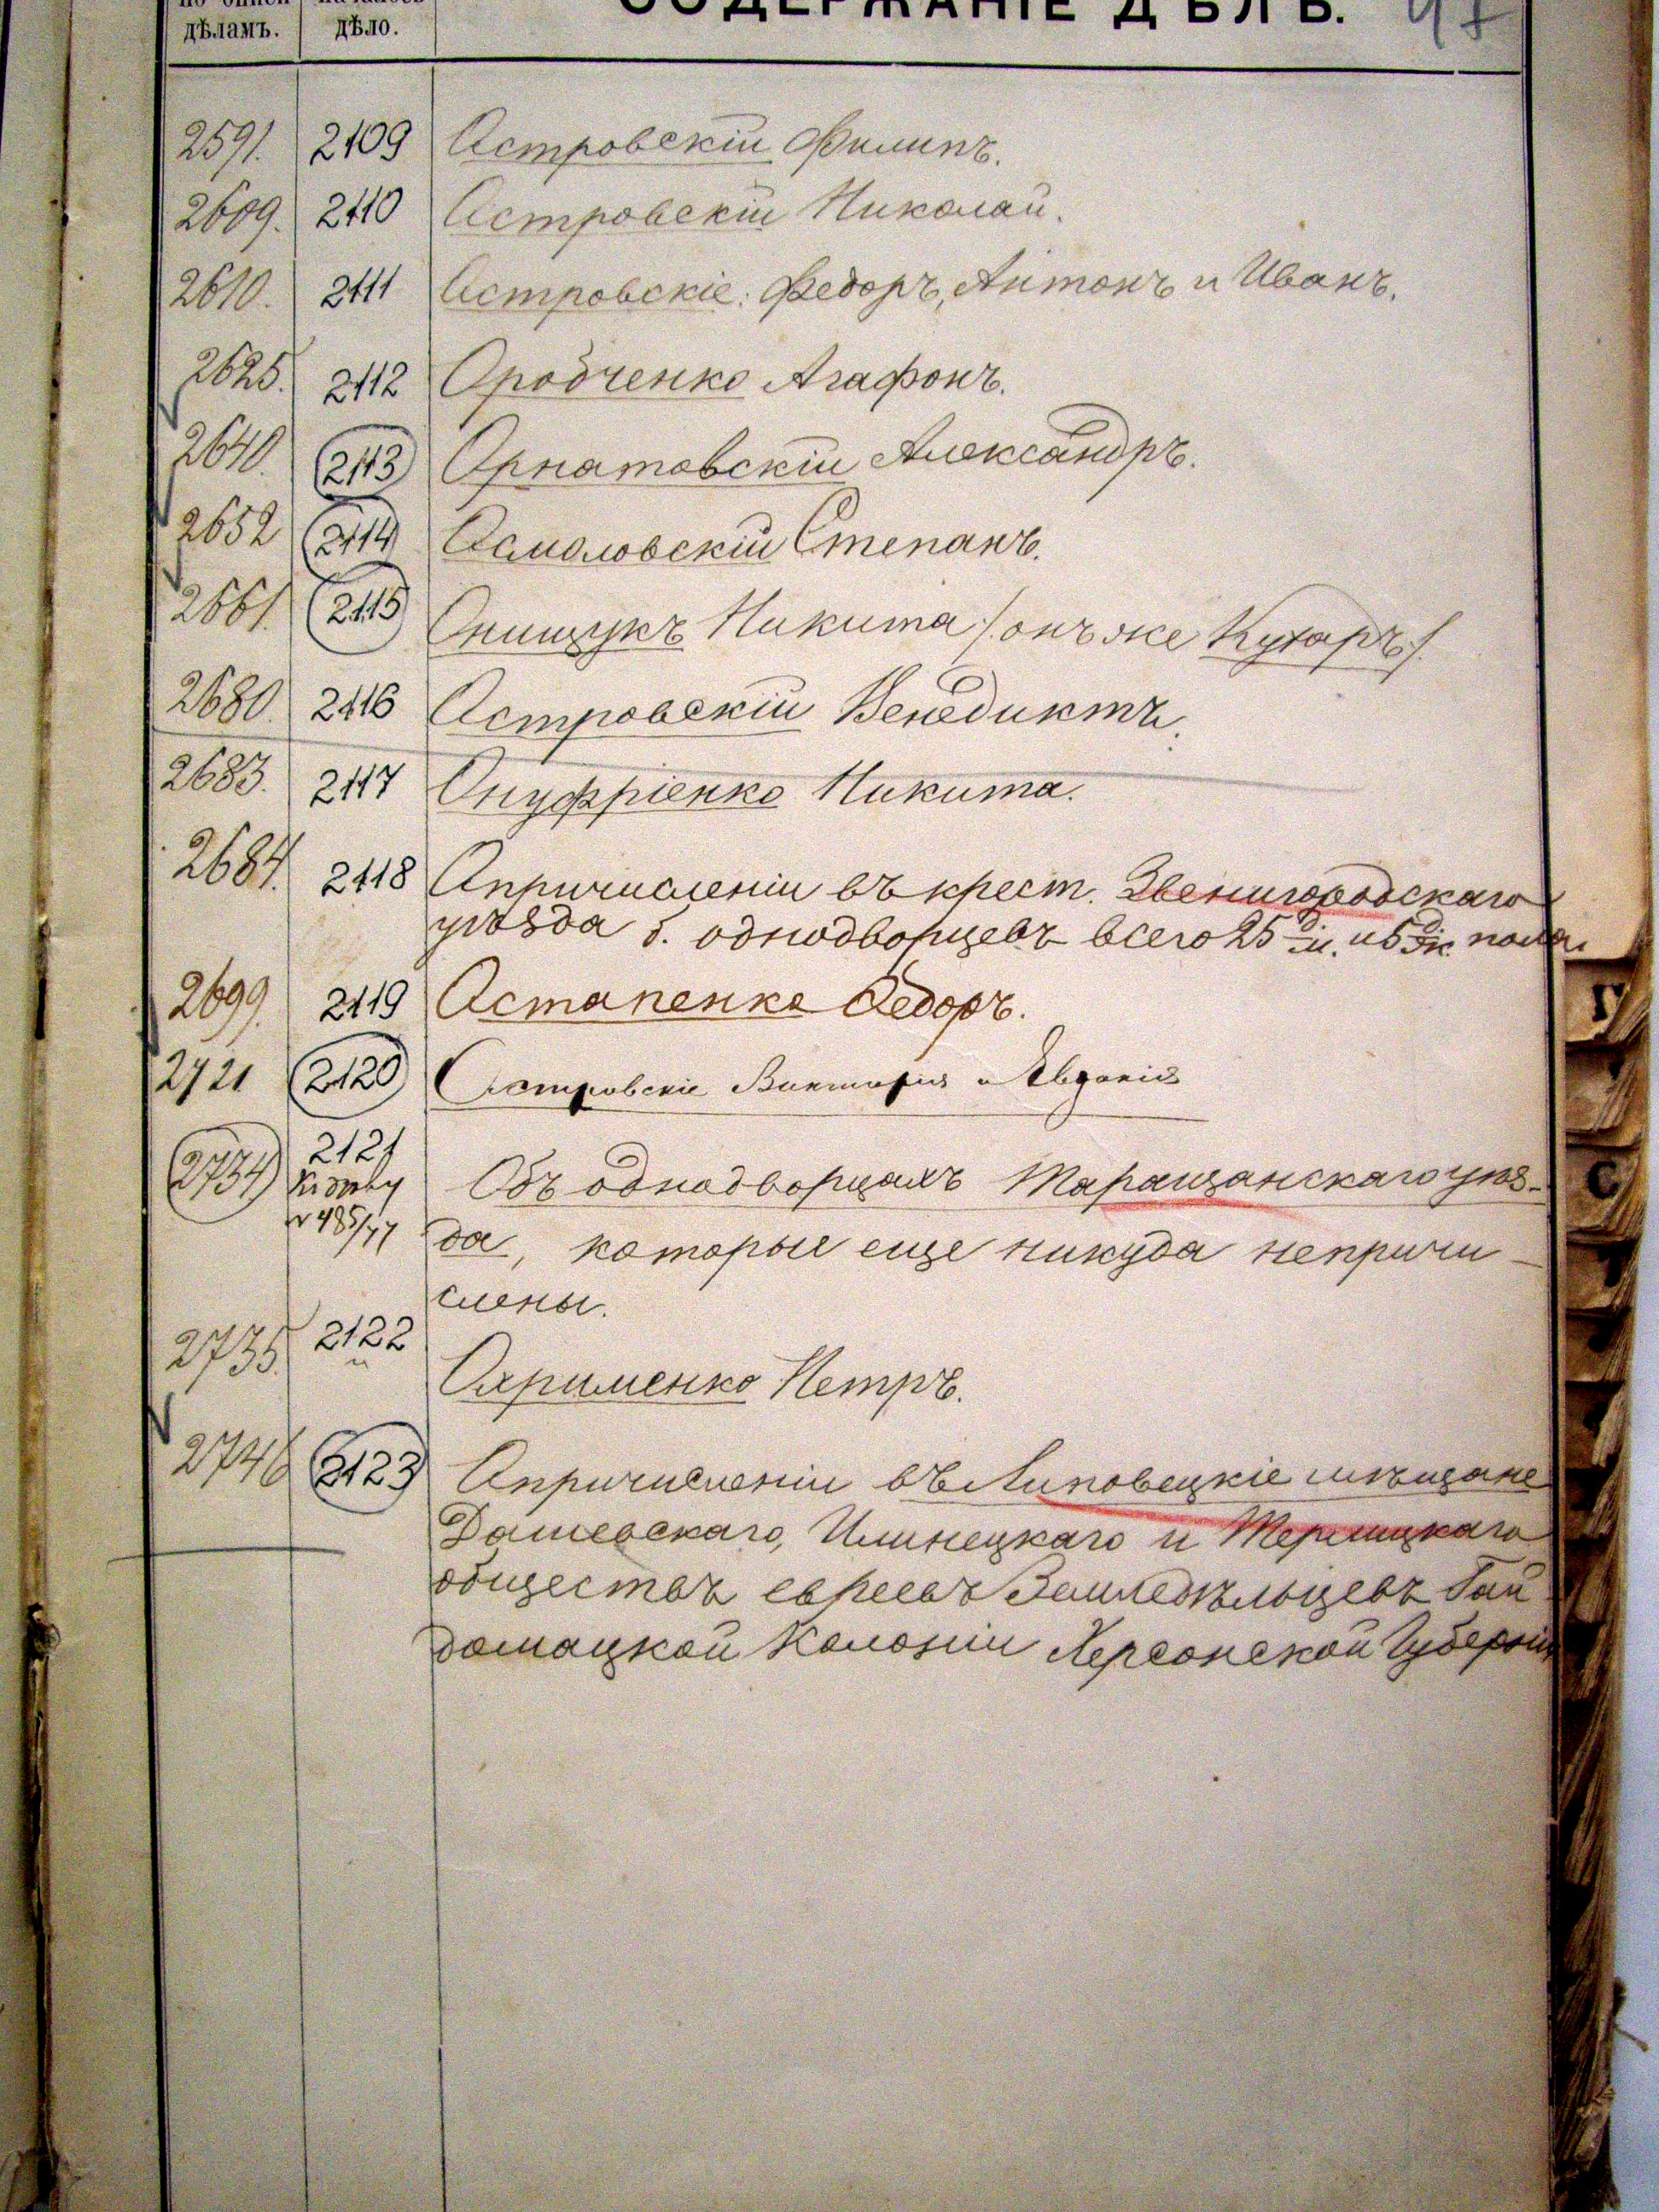 дѣламъ. дѣло. СОДЕРЖАНІЕ ДѢЛЪ. 47
2591. 2109 Островскій Филипъ.
2609. 2110 Островскій Николай.
2610. 2111 Островскіе: Федоръ, Антонъ и Иванъ.
2625. 2112 Оробченко Агафонъ.
2640. 2113 Орнатовскій Александръ.
2652 2114 Осмоловскій Степанъ.
2661. 2115 Онищукъ Никита /онъ же Кухаръ/.
2680. 2116 Островскій Венедиктъ.
2683. 2117 Онуфріенко Никита.
2684. 2118 О причисленіи въ крест. Звенигородскаго
уѣзда б. однодворцевъ всего 25 д. м. и 5 д. ж. пола.
2699. 2119 Остапенко Ѳедоръ.
2721 2120 Островскіе Викторія и Евдокія
2734 2121 Объ однодворцахъ Таращанскаго уѣз-
№ 485/77 да, которые еще никуда непричи-
слены.
2735. 2122 Охрименко Петръ.
2746 2123 О причисленіи въ Липовецкіе мѣщане
Дашевскаго, Илинецкаго и Терлицкаго
обществъ евреевъ Земледѣльцевъ Гай
домацкой Колоніи Херсонской Губерніи
Г
С